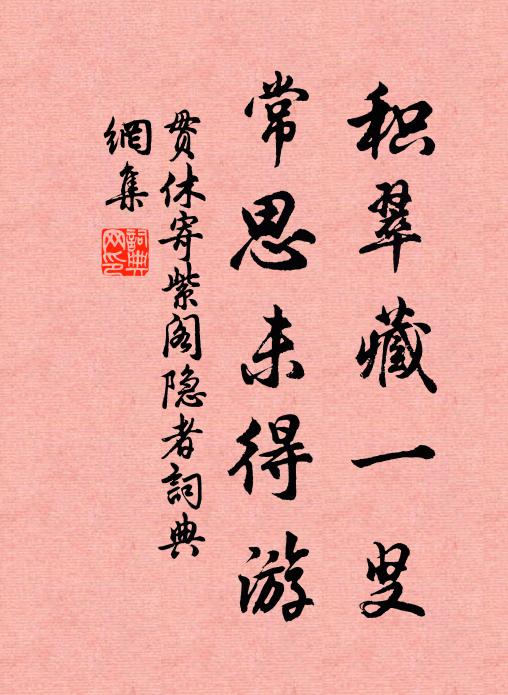 积翠藏一叟
常思未得游
贯休寄紫阁隐者詞典
網集
詞典网印